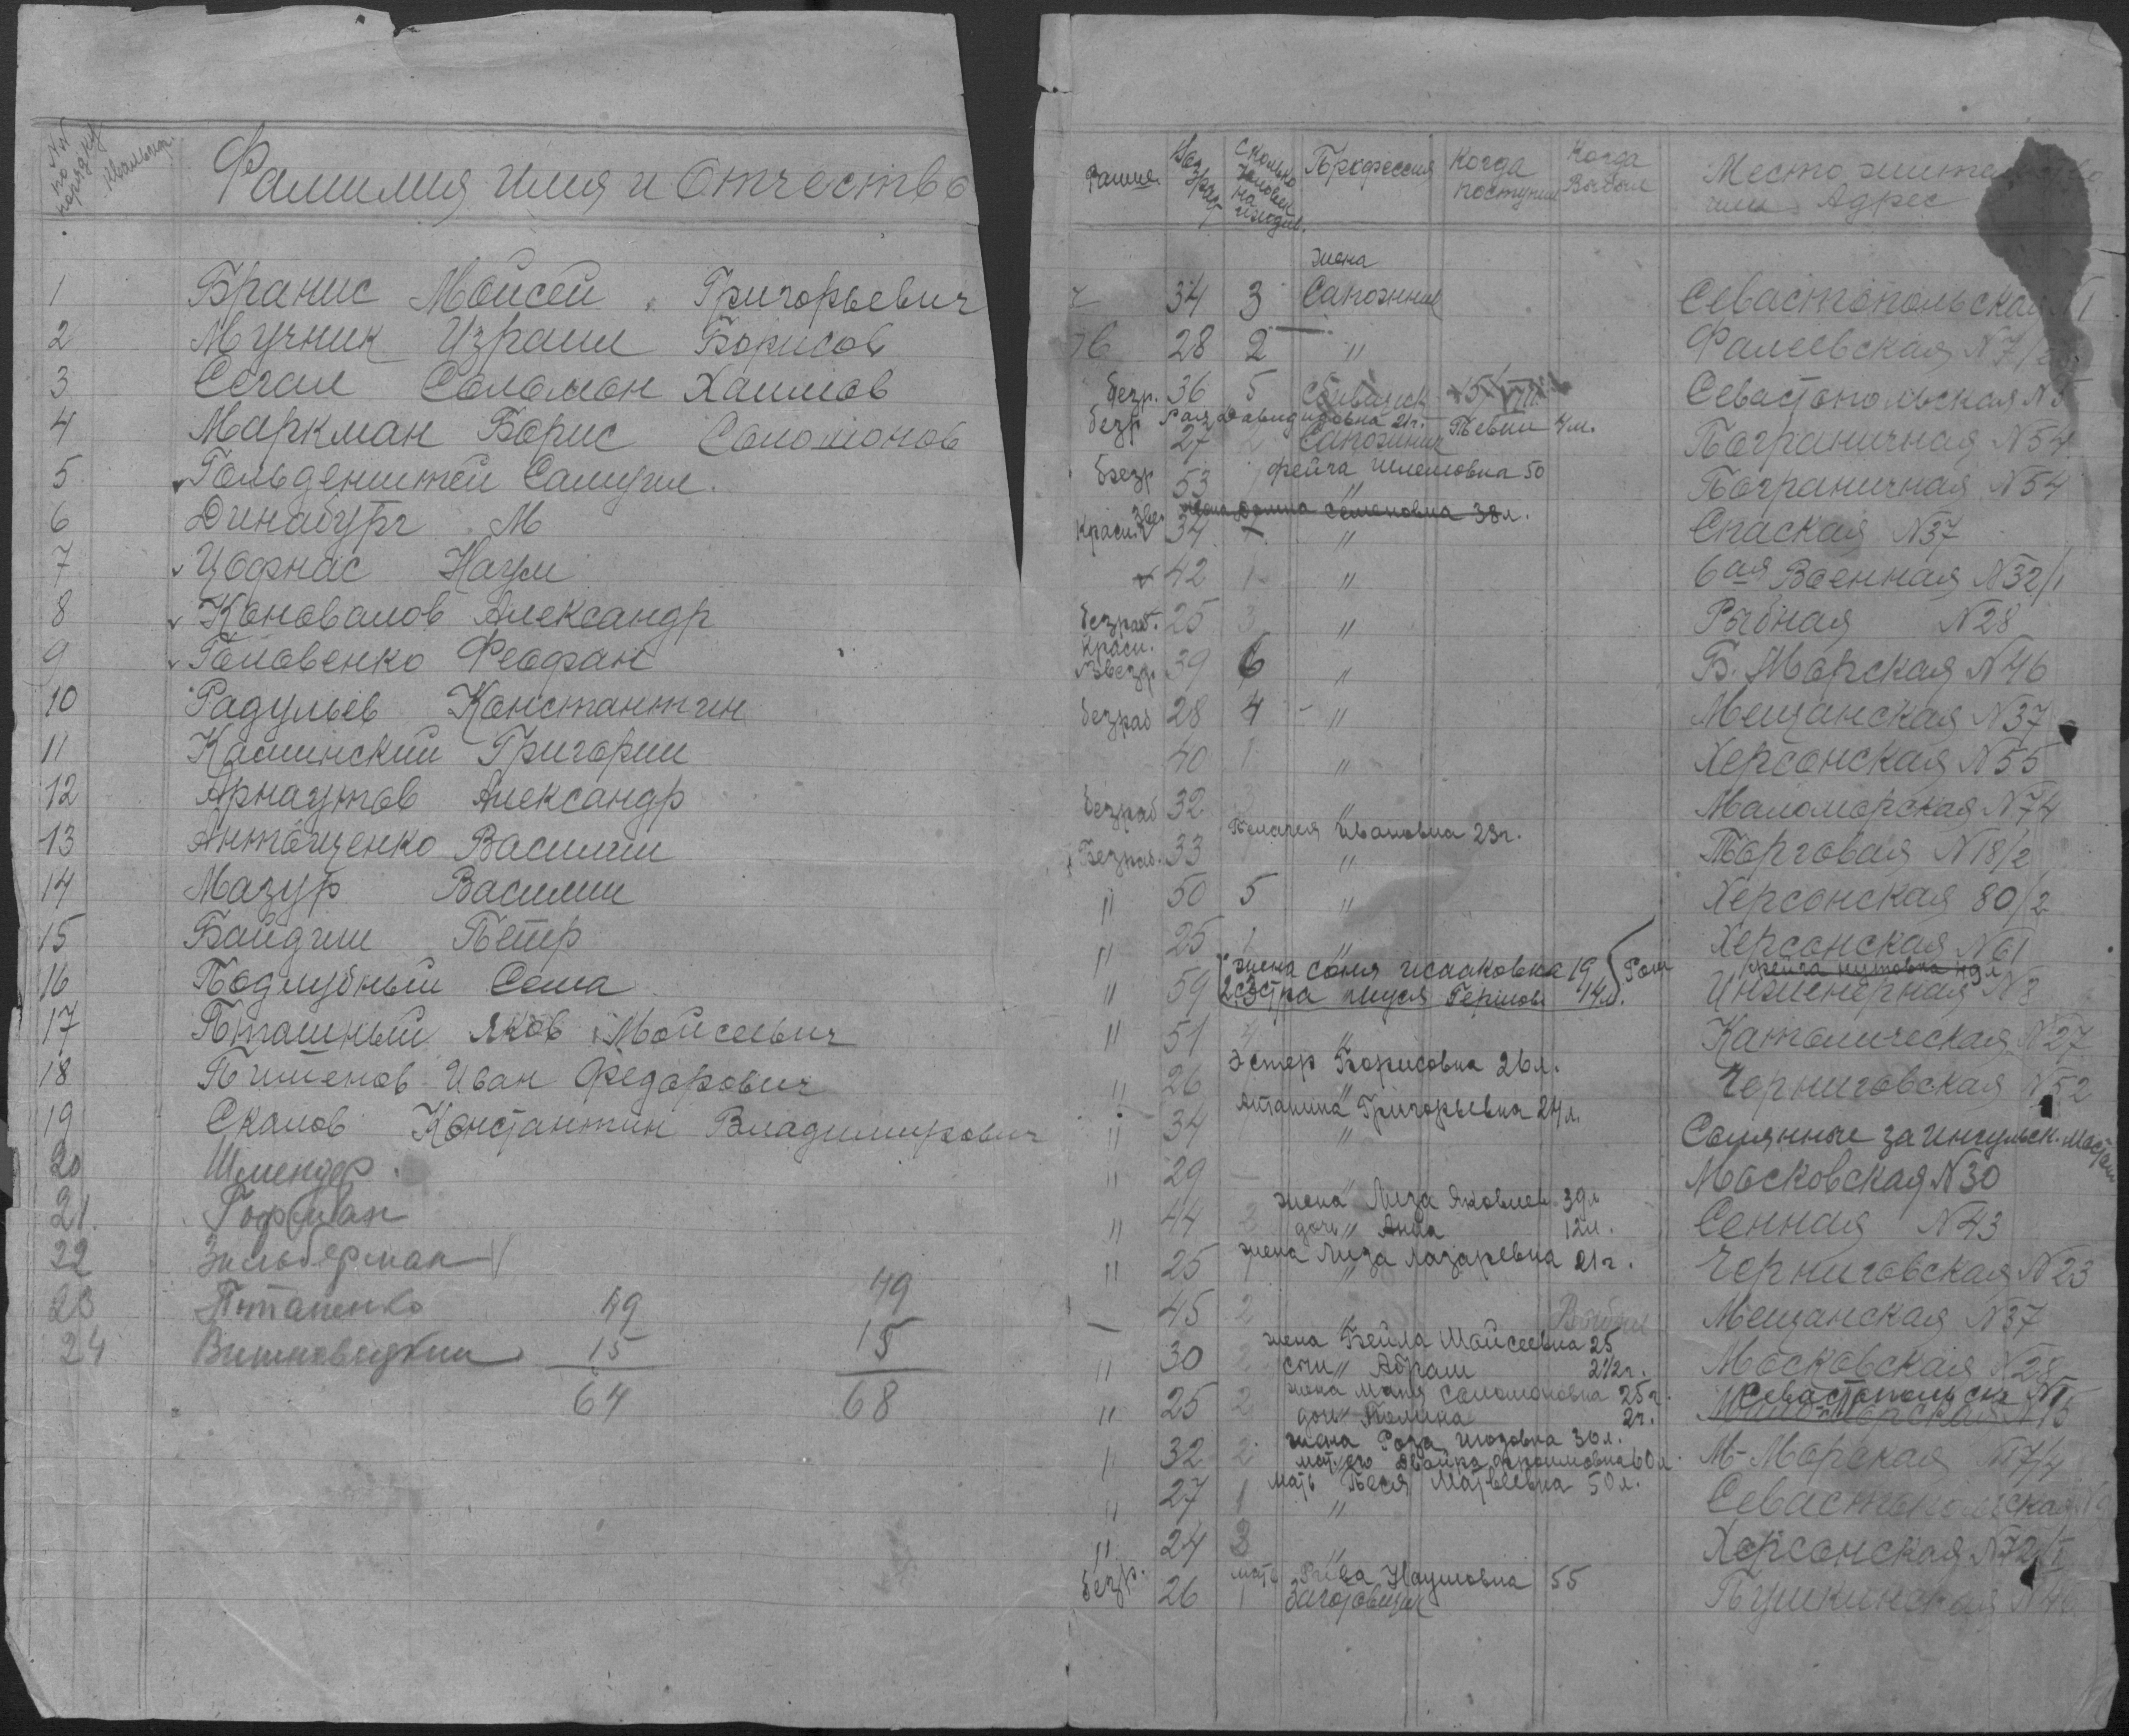 №№ по порядку
Фамилия Имя и Отчество
1 Бранис Мойсей Григорьевич
2 Мучник Израил Борисов
3 Сегал Соломон Хаимов
4 Маркман Борис Соломонов
5 Гольденштей Самуил.
6 Динабург М
7 Цофнас Наум
8 Коновалов Александр
9 Головенко Феофан
10 Радульев Константин
11 Каминский Григорий
12 Арнаутов Александр
13 Антощенко Василий
14 Мазур Василий
15 Байдин Петр
16 Подлубный Сёма
17 Пташный Яков Мойсеевич
18 Пименов Иван Федорович
19 Скалов Константин Владимирович
20 Шлендер.
21. Гофман
22 Зильберман
23 Потапенко 49 49
24 Вишневецкий 15 15
64 68
Возраст Сколько человек на иждив. Профессия Когда поступил Когда Выбыл Место жительство или Адрес
жена
34 3 Сапожник Севастопольская №1
28 2 " Фалеевская №7/2
безр. 36 5 15/VIII Севастопольская №5
Рая Давидовна 21г.
безр 27 2 Сапожник 4 м. Пограничная №54
Фейга Шлемовна 50
безр 53 " Пограничная №54
жена Семеновна 38 л.
Красн. 34 " Спаская №37
42 1 " 6ая Военная №32/1
безраб. 25 3 " Рыбная №28
Красн.
Звезд. 39 6 " Б. Морская №46
безраб 28 4 - " Мещанская №37
40 1 " Херсонская №55
безраб 32 3 " Маломорская №74
Пелагея Ивановна 23г.
Безраб. 33 " Торговая №18/2
" 50 5 " Херсонская 80/2
" 25 1 " Херсонская №61
жена Соня Исааковна 19
" 59 сестра 14 л. Инженерная №8
" 51 4 " Католическая №27
Эстер Борисовна 26 л.
" 26 " Черниговская №52
Антанина Григорьевна 24 л.
" 34 " Соляные за Ингульск. Мостом
" 29 - " Московская №30
жена Лиза Яковлев 39 л
" 44 2 дочь " Анна 12 л. Сенная №43
жена Лиза Лазаревна 21 г.
" 25 1 " Черниговская №23
— 45 2 " Выбыл Мещанская №37
жена Бейла Мойсеевна 25
" 30 2 сын " Абрам 2 1/2 г. Московская №28
жена Маня Соломоновна 25 г. Севастопольск №1
" 25 2 дочь Полина 2 г.
жена Роза 30 л.
" 32 2 мать его 60 л. М-Морская №7/4
мать Бася Матвеевна 50 л.
" 27 1 " Севастопольская
" 24 3 " Херсонская №72/1
мать Рива Наумовна 55
безр. 26 1 Заготовщик Пушкинская №46